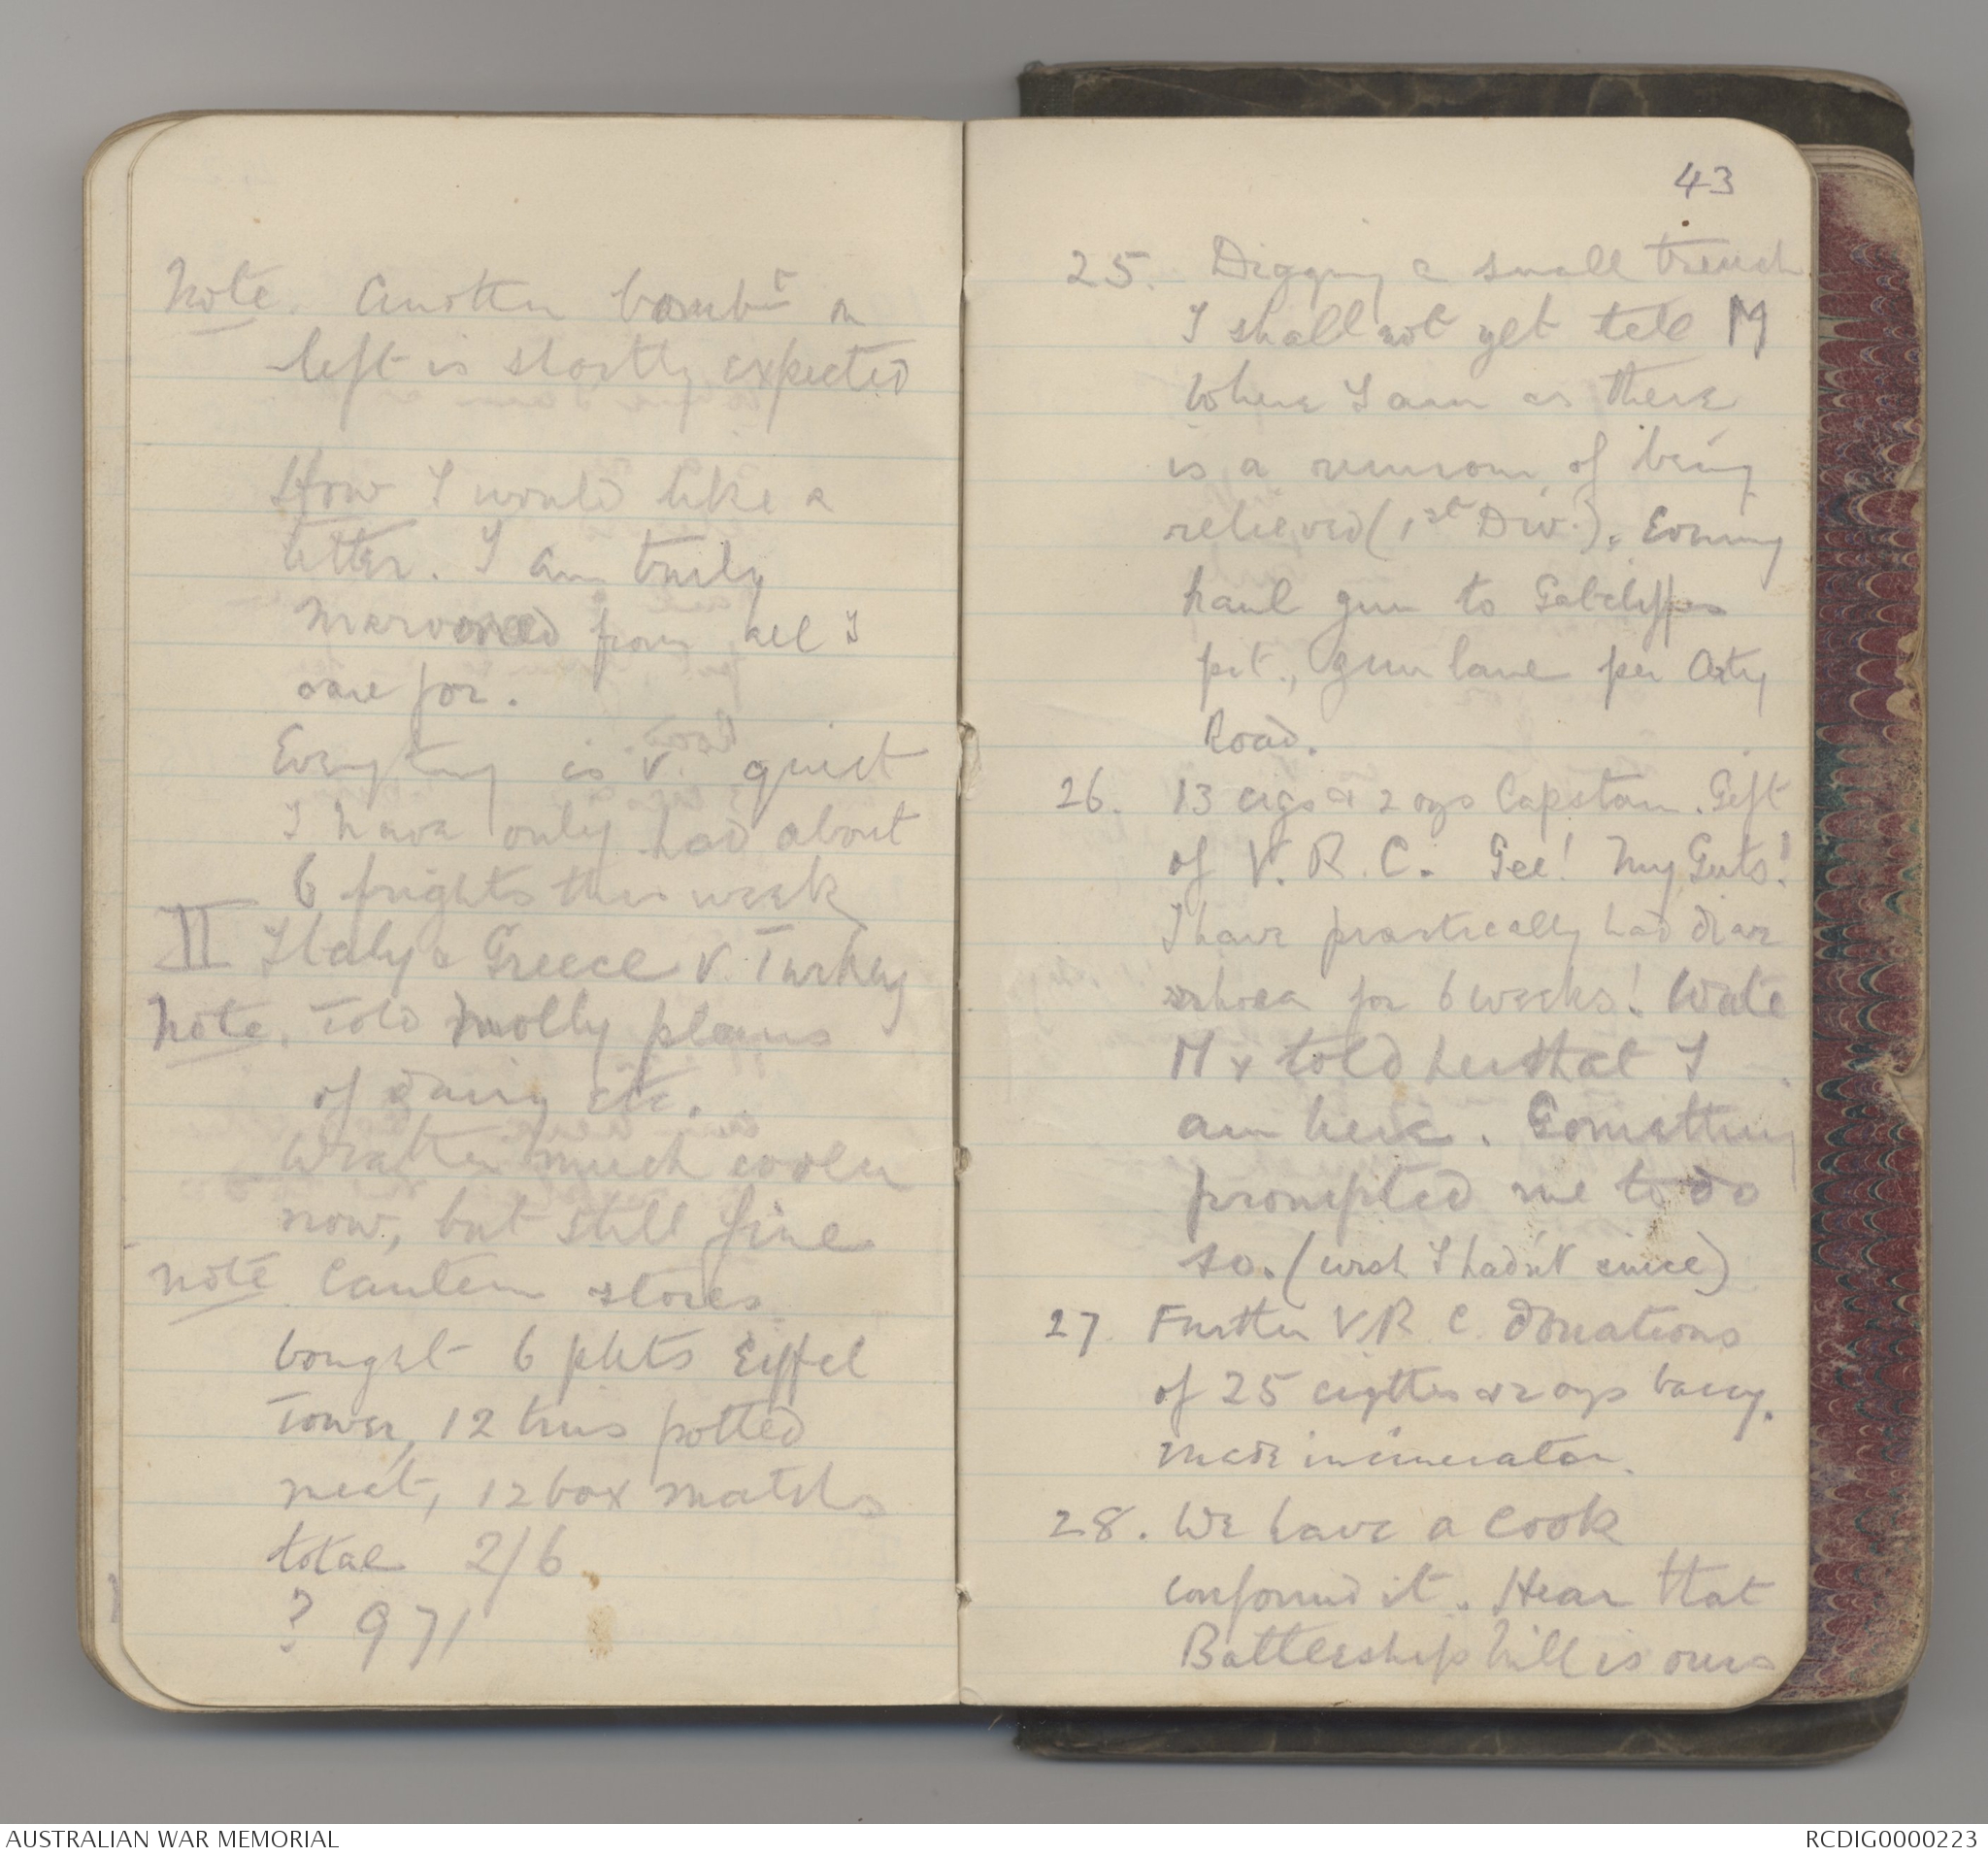 Note. Another bombt on
left is shortly expected
How I would like a
letter. I am truly
marooned from all I
care for.
Everything is v. quiet
I have only had about
6 frights this week
II Italy & Greece v. Turkey
Note. Told Molly plans
of dairy etc.
Weather much cooler
now, but still fine
Note Canteen stores
bought 6 pkts Eiffel
Tower, 12 tins potted
meat, 12 box matchs
total 2/6.
? 971
43
25. Digging a small trench
I shall not yet tell M
where I am as there
is a rumour of being
relieved (1st Div.). Evening
haul gun to
pit., gun lane per Arty
Road.
26. 13 cigs & 2 ozs Capstan. Gift
of V.R.C. Gee! My Guts!
I have practically had diar
rhoea for 6 weeks! Wrote
M & told her that I
am here. Something
prompted me to do
so. (wish I hadn't since)
27. Further V.R.C. donations
of 25 cigttes & 2 ozs baccy.
Made incinerator.
28. We have a cook
confound it. Hear that
Battleship hill is ours
AUSTRALIAN WAR MEMORIAL
RCDIG0000223